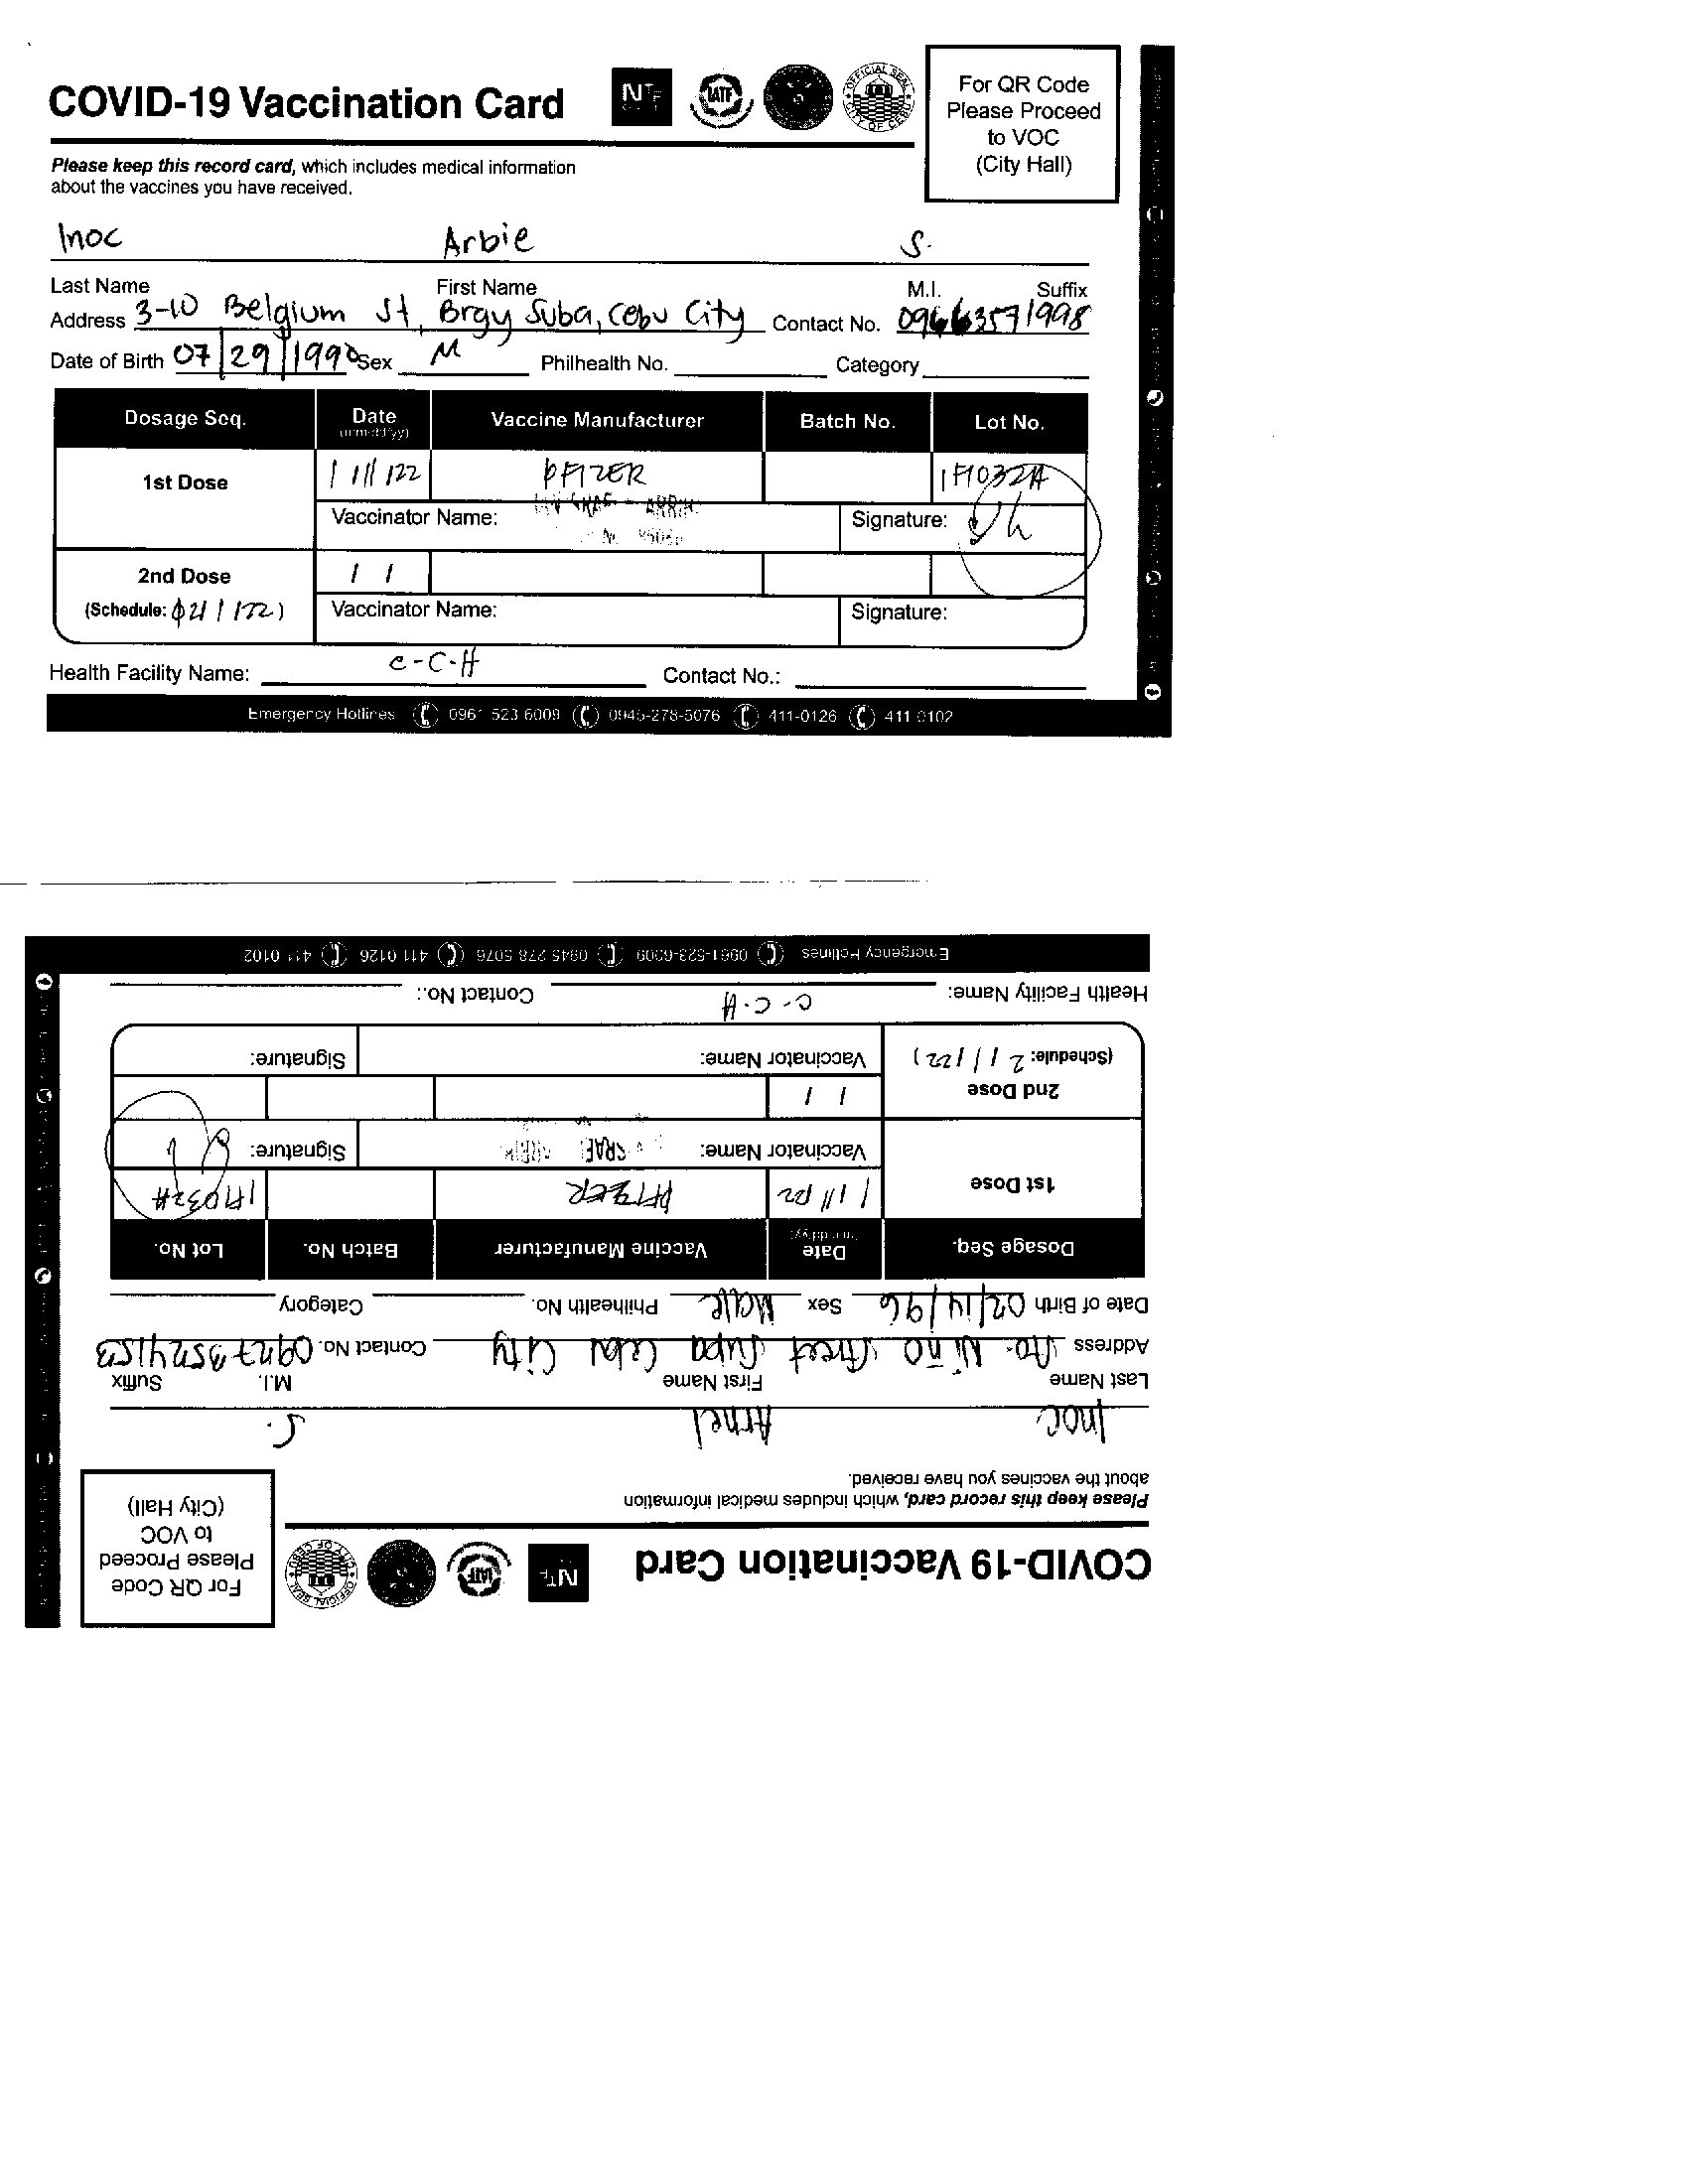 COVID-19 Vaccination Card
NTF
IATF
OFFICIAL SEAL
CITY OF CEBU
For QR Code
Please Proceed
to VOC
(City Hall)
Please keep this record card, which includes medical information
about the vaccines you have received.
Inoc Arbie S.
Last Name First Name M.I. Suffix
Address 3-10 Belgium St, Brgy Suba, Cebu City Contact No. 09663571998
Date of Birth 07/29/1998 Sex M Philhealth No. Category
Dosage Seq. Date (mm/dd/yy) Vaccine Manufacturer Batch No. Lot No.
1st Dose 1/11/22 PFIZER 1F1032A
Vaccinator Name: Signature:
2nd Dose / /
(Schedule: 2/1/22)
Vaccinator Name: Signature:
Health Facility Name: C-C-H Contact No.:
Emergency Hotlines 0961 523 6009 0945-278-5076 411-0126 411 0102
COVID-19 Vaccination Card
NTF
IATF
OFFICIAL SEAL
CITY OF CEBU
For QR Code
Please Proceed
to VOC
(City Hall)
Please keep this record card, which includes medical information
about the vaccines you have received.
Inoc Arnel S.
Last Name First Name M.I. Suffix
Address Sto. Niño Street Suba Cebu City Contact No. 09273524153
Date of Birth 02/14/96 Sex Male Philhealth No. Category
Dosage Seq. Date (mm/dd/yy) Vaccine Manufacturer Batch No. Lot No.
1st Dose 1/11/22 PFIZER 1F1032A
Vaccinator Name: Signature:
2nd Dose / /
(Schedule: 2/1/22)
Vaccinator Name: Signature:
Health Facility Name: C-C-H Contact No.:
Emergency Hotlines 0961-523-6009 0945 278 5076 411 0126 411 0102